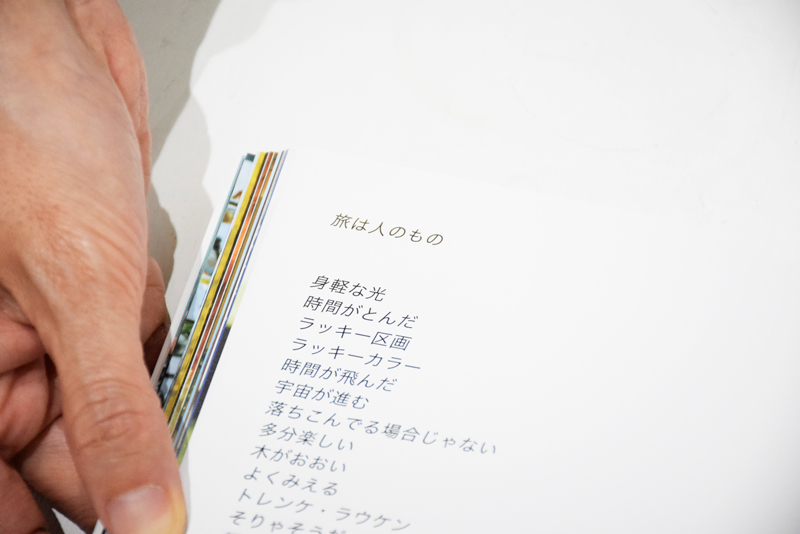 旅は人のもの
身軽な光
時間がとんだ
ラッキー区画
ラッキーカラー
時間が飛んだ
宇宙が進む
落ちこんでる場合じゃない
多分楽しい
木がおおい
よくみえる
トレンケ・ラウケン
そりゃそうだ